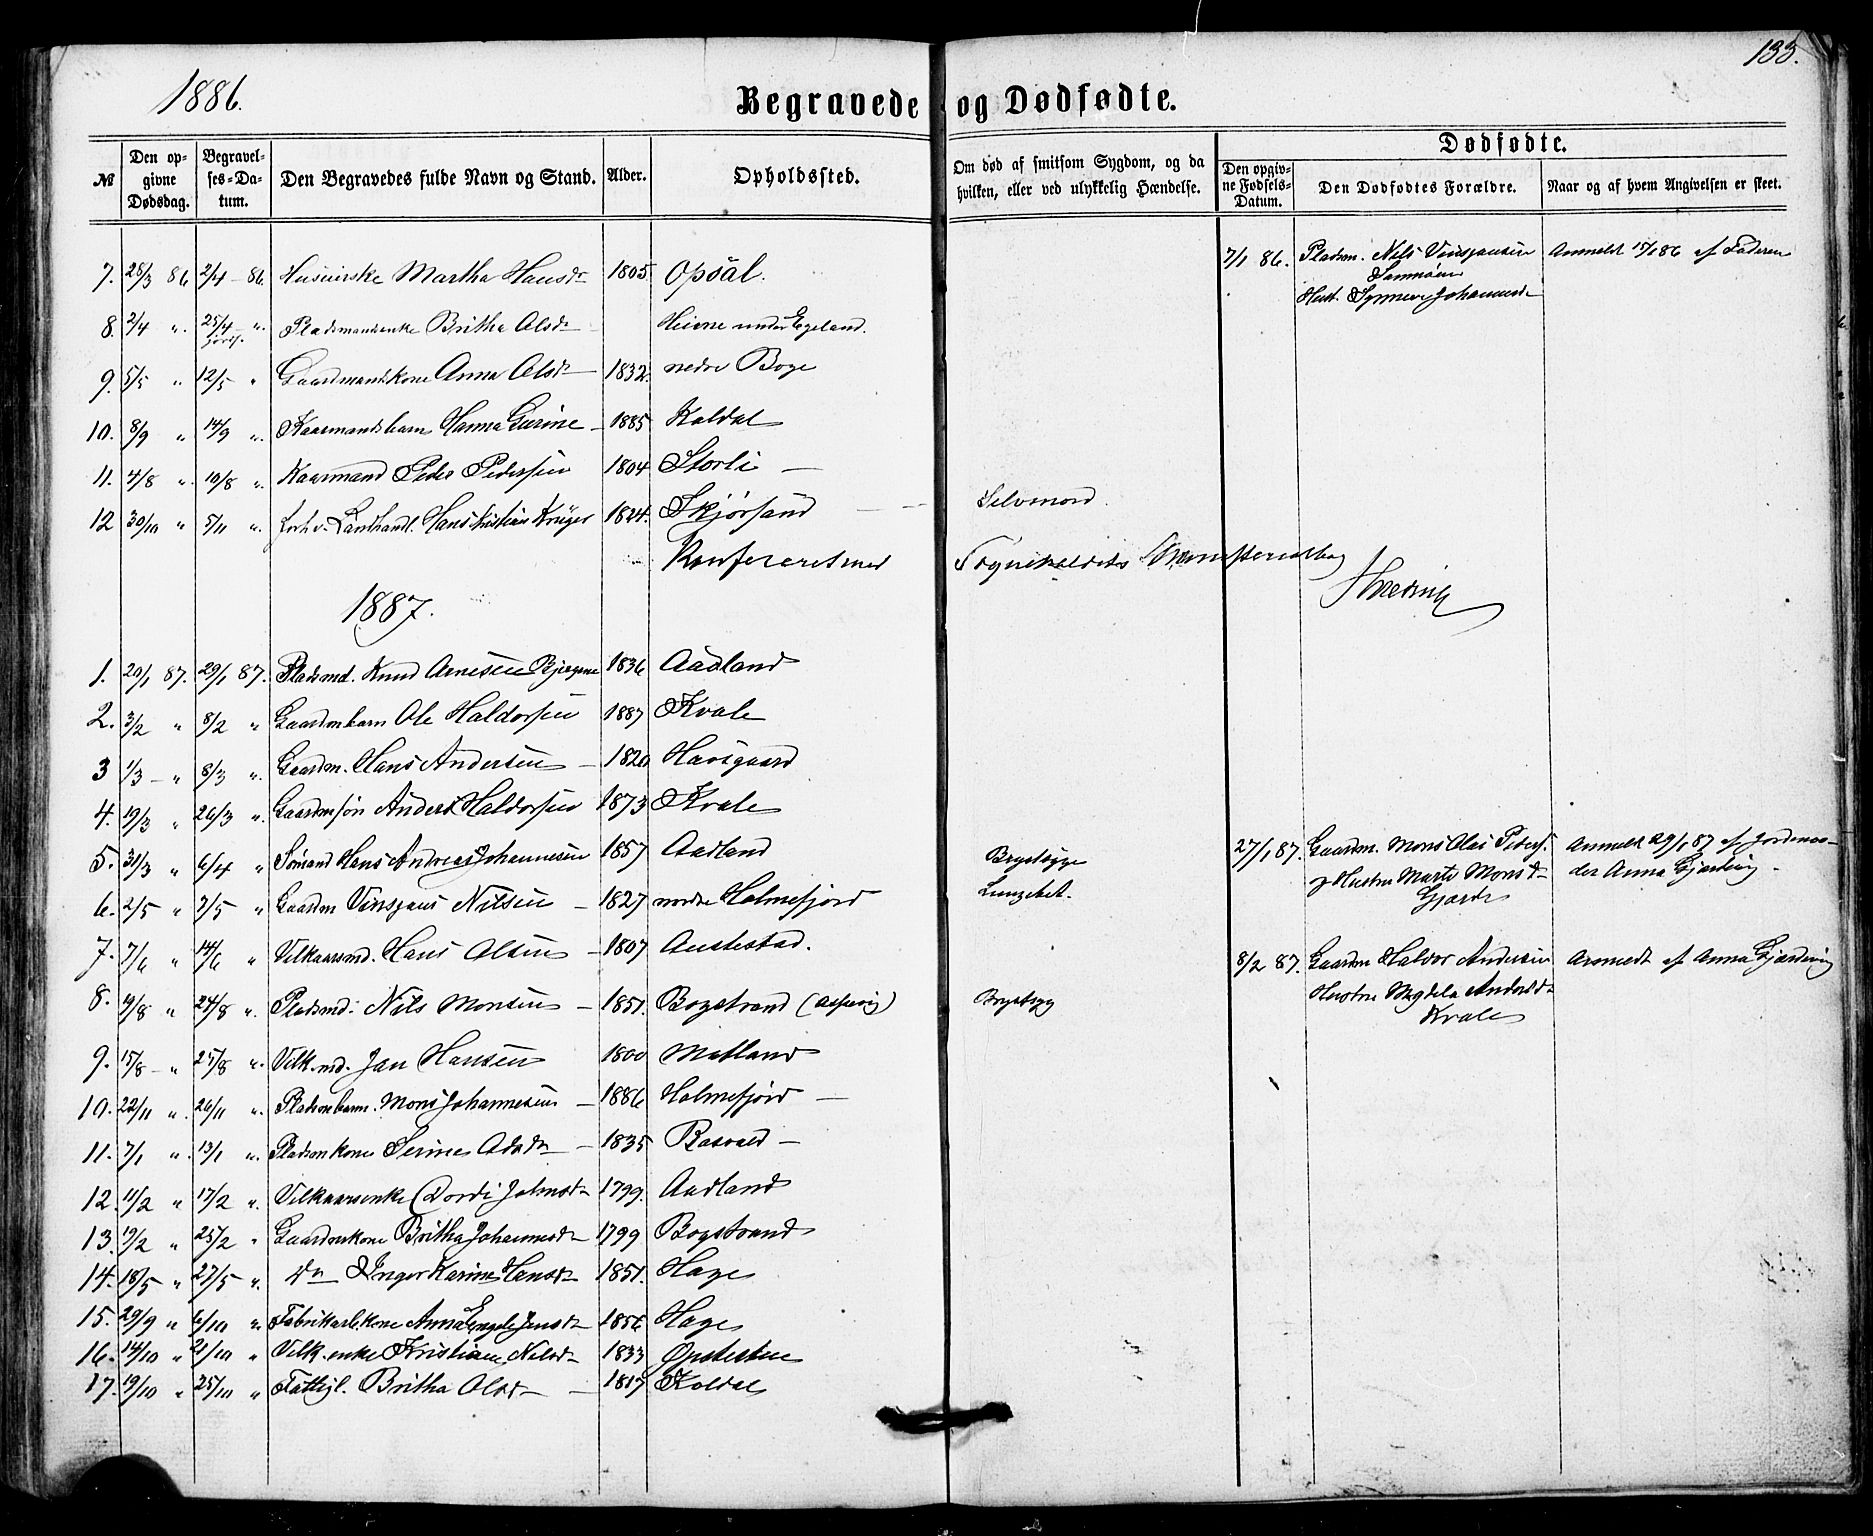 133.
1886.
Begravede og Dødfødte.
№
Den opgivne Dødsdag.
Begravelses-Datum.
Den Begravedes fulde Navn og Stand.
Alder.
Opholdssted.
Om død af smitsom Sygdom, og da hvilken, eller ved ulykkelig Hændelse.
Dødfødte.
Den opgivne Fødsels-Datum.
Den Dødfødtes Forældre.
Naar og af hvem Angivelsen er skeet.
7. 28/3 86 2/4 - 86. Martha Hansdr 1805. Opsål.
7/1 86. Pladsm. Nils Vinsjansen Anmeldt 15/1 86 af Faderen
Hust. Synneve Johannesdr
8. 2/4 " 25/4 " Pladsmandsenke Britha Olsdr Heione under Egeland.
9. 5/5 " 12/5 " Gaardmandskone Anna Olsdr 1832. nedre Boge
10. 8/9 " 14/9 " Kaarmandsbarn Hanna Gurine 1885 Koldal
11. 4/8 " 10/8 " Kaarmand Peder Pedersen 1804 Storli
12 30/10 " 5/11 " forh.v. Landhandl. Hans Kristian Krüger 1824. Skjørsand Selvmord.
Konfereret med Sognekaldets Ministerialbog
1887.
1. 20/1 87. 29/1 87. Pladsmd. Knud Arnesen Bjergene 1836 Aadland
2. 3/2 " 8/2 " Gaardmbarn Ole Haldorsen 1887 Kvale
3 1/3 - " 8/3 " Gaardm. Hans Andersen 1820 Havsgaard
4. 19/3 " 26/3 " Gaardmsøn Anders Haldorsen 1873 Kvale
5. 31/3 " 6/4 " Sømand Hans Andreas Johannesen 1857 Aadland Brystsyge
27/1 87. Gaardm. Mons Olai Peders. Anmeldt 29/1 87 af Jordemo-
g Hustru Marte Monsdr der Anna Gjærdvig
Gjærde
6. 2/5 " 7/5 " Gaardm Vinsjans Nilsen 1827 nordre Holmefjord
7. 7/6 " 14/6 " Vilkaarsmd. Hans Olsen 1807 Austestad.
8/2 87. Gaardm Haldor Andersen Anmeldt af Anna Gjærdvig
Hustru Magdela Andersdr
Kvale
8. 19/8 " 24/8 " Pladsmd. Nils Monsen 1851. Bogstrand (Aspevig) Brystsyg
9. 15/8 - " 25/8 " Vilk.md. Jan Hansen 1800 Matland
10. 22/11 " 26/11 " Pladsmbarn. Mons Johannesen 1886 Holmefjord
11. 7/1 " 13/1 " Pladsmkone Serine 1835
12. 11/2 " 17/2 " Vilkaarsenke Dordi Johnsdr 1799. Aadland
13. 19/2 " 25/2 " Gaardmkone Britha Johannesdr 1799 Bogstrand
14. 18/5 " 27/5 " Do Inger Karine Hansdr 1851. Hage
15. 29/9 " 6/10 " Fabrikarb.kone Anna Engele Jensdr 1856 Hage
16. 14/10 " 21/10 " Vilk.enke Kristiane Nilsdr 1833
17. 19/10 " 25/10 " Fattigl. Britha Olsdr 1817 Koldal